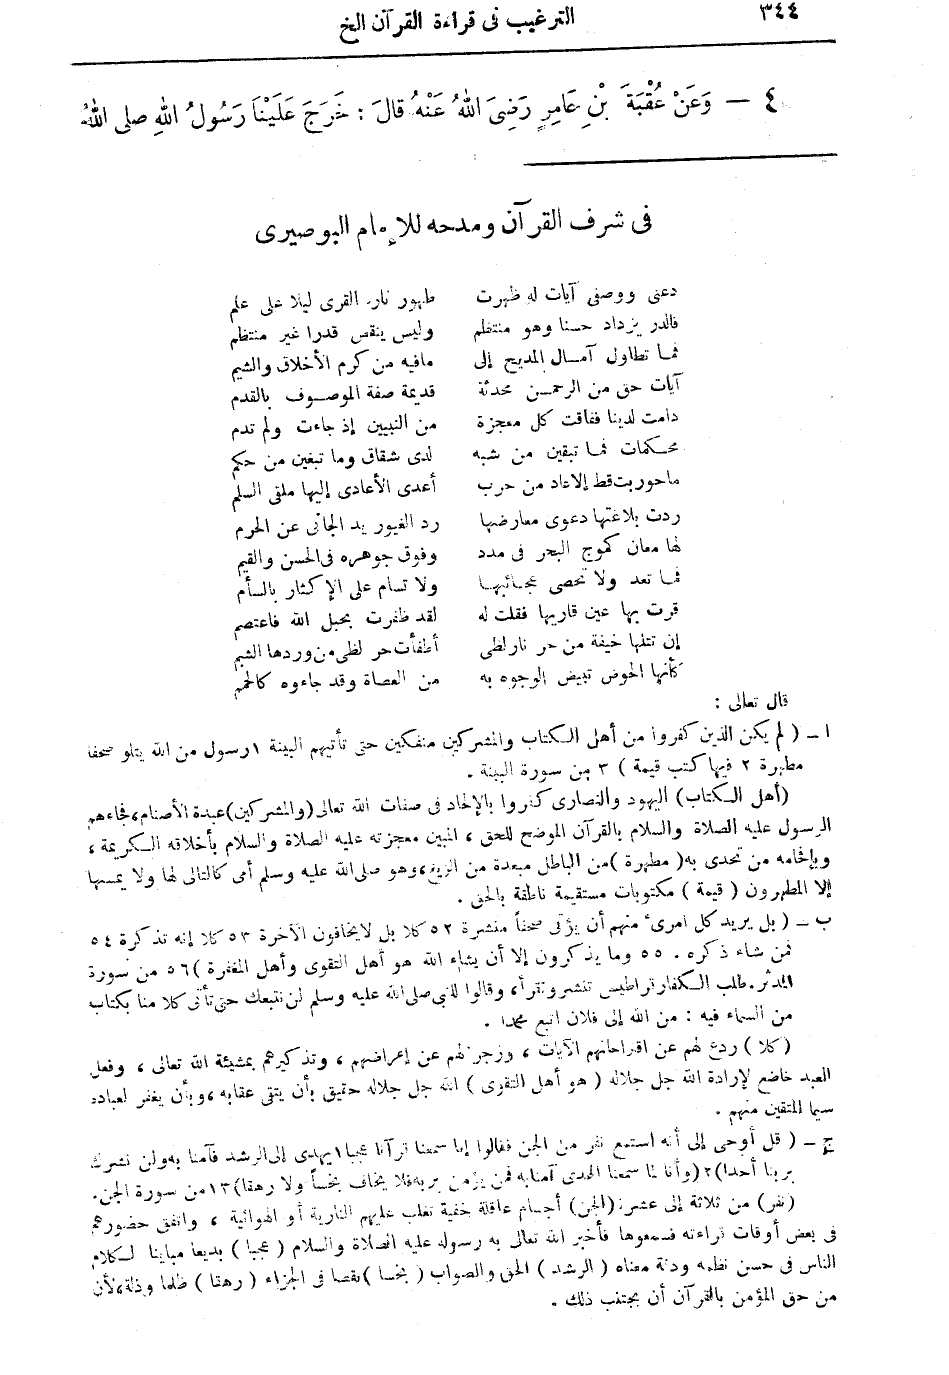 ٣٤٤
الترغيب فى قراءة القرآن الخ
٤ — وَعَنْ عُقْبَةَ بْنِ عَامِرٍ رَضِىَ اللهُ عَنْهُ قَالَ : خَرَجَ عَلَيْنَا رَسُولُ اللهِ صلى اللهُ
فى شرف القرآن ومدحه للإمام البوصيرى
دعنى ووصفى آيات له ظهرت ظهور نار القرى ليلا على علم
فالدر يزداد حسنا وهو منتظم وليس ينقص قدرا غير منتظم
فما تطاول آمال المديح إلى مافيه من كرم الأخلاق والشيم
آيات حق من الرحمن محدثة قديمة صفة الموصوف بالقدم
دامت لدينا ففاقت كل معجزة من النبيين إذ جاءت ولم تدم
محكمات فما تبقين من شبه لدى شقاق وما تبغين من حكم
ماحوربت قط إلا عاد من حرب أعدى الأعادى إليها ملقى السلم
ردت بلاغتها دعوى معارضها رد الغيور يد الجانى عن الحرم
لها معان كموج البحر فى مدد وفوق جوهره فى الحسن والقيم
فما تعد ولا تحصى عجائبها ولا تسام على الإكثار بالسأم
قرت بها عين قاريها فقلت له لقد ظفرت بحبل الله فاعتصم
إن تتلها خيفة من حر نار لظى أطفأت حر لظى من وردها الشبم
كأنها الحوض تبيض الوجوه به من العصاة وقد جاءوه كالحمم
قال تعالى :
ا — ( لم يكن الذين كفروا من أهل الكتاب والمشركين منفكين حتى تأتيهم البينة ١ رسول من الله يتلو صحفا
مطهرة ٢ فيها كتب قيمة ) ٣ من سورة البينة .
(أهل الكتاب) اليهود والنصارى كفروا بالإلحاد فى صفات الله تعالى (والمشركين) عبدة الأصنام، فجاءهم
الرسول عليه الصلاة والسلام بالقرآن الموضح للحق ، المبين معجزته عليه الصلاة والسلام بأخلاقه الكريمة ،
وبإفحامه من تحدى به ( مطهرة ) من الباطل مبعدة من الزيغ، وهو صلى الله عليه وسلم أمى كالتالى لها ولا يمسها
إلا المطهرون ( قيمة ) مكتوبات مستقيمة ناطقة بالحق .
ب — ( بل يريد كل امرىء منهم أن يؤتى صحفاً منشرة ٥٢ كلا بل لا يخافون الآخرة ٥٣ كلا إنه تذكرة ٥٤
فمن شاء ذكره . ٥٥ وما يذكرون إلا أن يشاء الله هو أهل التقوى وأهل المغفرة ) ٥٦ من سورة
المدثر . طلب الكفار قراطيس تنشر وتقرأ، وقالوا للنبى صلى الله عليه وسلم لن نتبعك حتى تأتى كلا منا بكتاب
من السماء فيه : من الله إلى فلان اتبع محمدا .
(كلا ) ردع لهم عن اقتراحاتهم الآيات ، وزجر لهم عن إعراضهم ، وتذكيرهم بمشيئة الله تعالى ، وفعل
العبد خاضع لإرادة الله جل جلاله ( هو أهل التقوى ) الله جل جلاله حقيق بأن يتقى عقابه ، وبأن يغفر لعباده
سيما المتقين منهم .
ج — ( قل أوحى إلى أنه استمع نفر من الجن فقالوا إنا سمعنا قرآنا عجبا ١ يهدى إلى الرشد فآمنا به ولن نشرك
بربنا أحدا) ٢ (وأنا لما سمعنا الهدى آمنا به فمن يؤمن بربه فلا يخاف بخساً ولا رهقا) ١٣ من سورة الجن.
(نفر) من ثلاثة إلى عشرة (الجن) أجسام عاقلة خفية تغلب عليهم النارية أو الهوائية ، واتفق حضورهم
فى بعض أوقات قراءته فسمعوها فأخبر الله تعالى به رسوله عليه الصلاة والسلام ( عجبا ) بديعا مباينا لكلام
الناس فى حسن نظمه ودقة معناه ( الرشد ) الحق والصواب ( بخسا ) نقصا فى الجزاء ( رهقا ) ظلما وذلة، لأن
من حق المؤمن بالقرآن أن يجتنب ذلك .